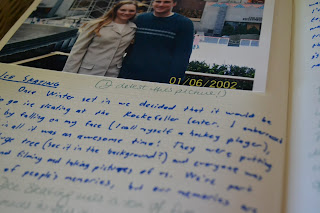 01/06/2002
Ice Skating
(I detest this picture!)
Once Winter set in we decided that it would be
go ice skating at the Rockefeller Center. I embarrass
by falling on my face (I call myself a hockey player),
in all it was an awesome time! They were putting
large tree (see it in the background?) and everyone was
nd filming and taking pictures of us. We're part
of people's memories, but our memories are